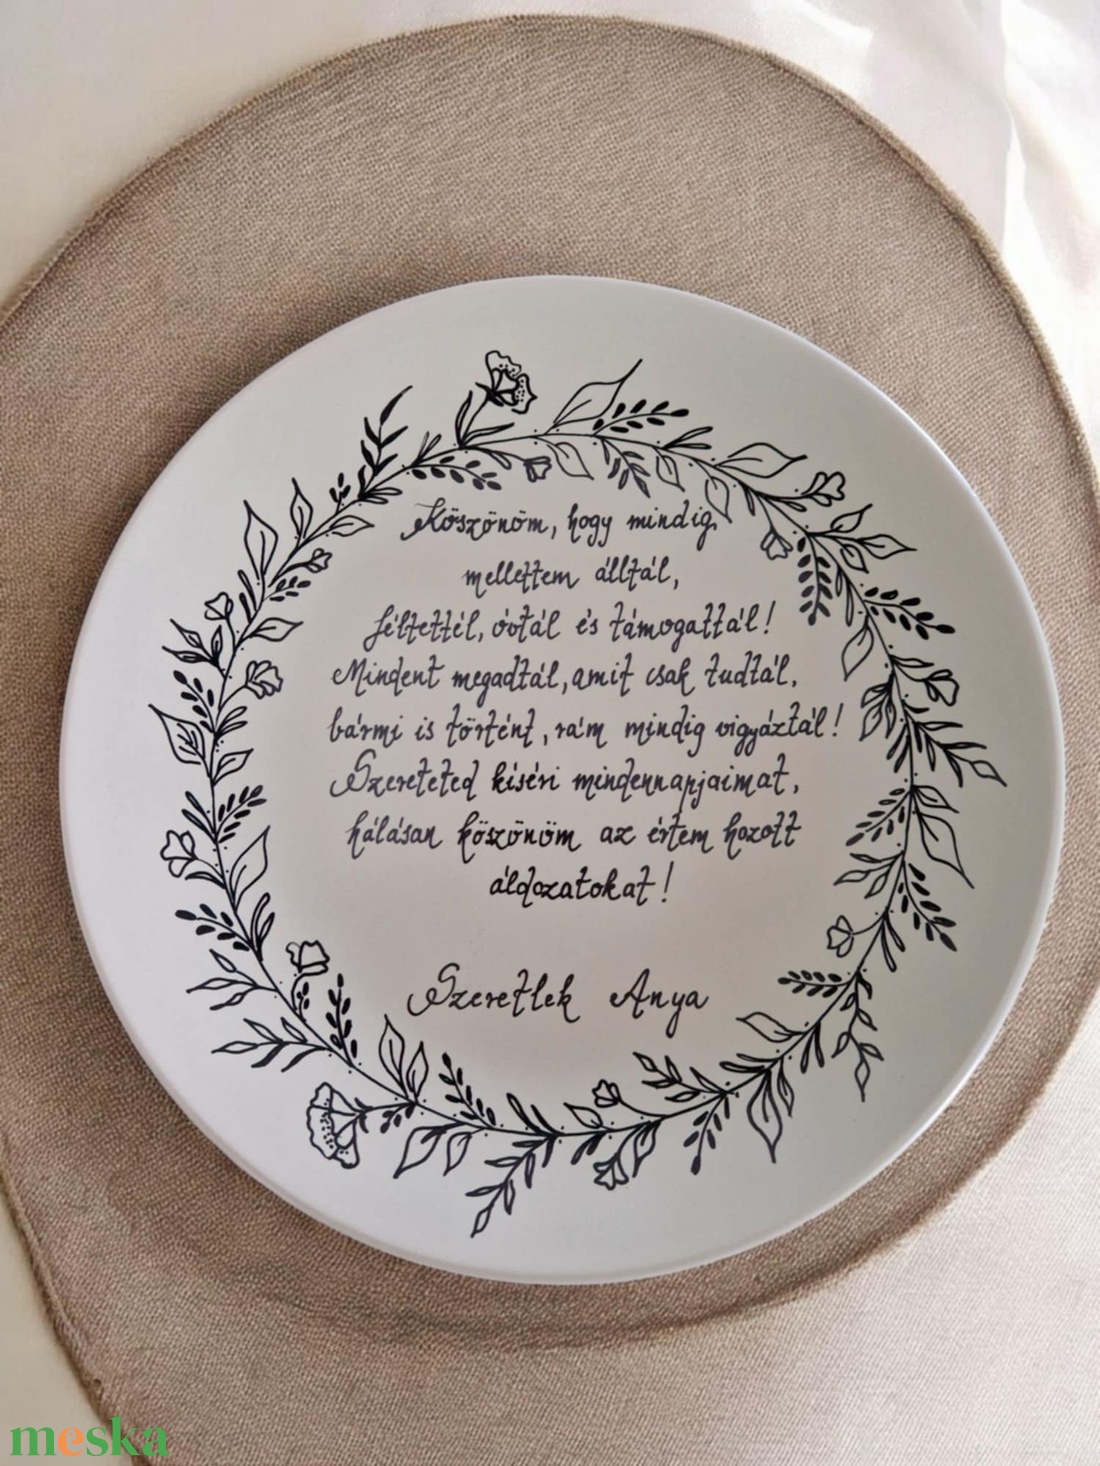 Köszönöm, hogy mindig
mellettem álltál,
féltettél, óvtál és támogattál!
Mindent megadtál, amit csak tudtál,
bármi is történt, rám mindig vigyáztál!
Szereteted kíséri mindennapjaimat,
hálásan köszönöm az értem hozott
áldozatokat!
Szeretlek Anya
meska